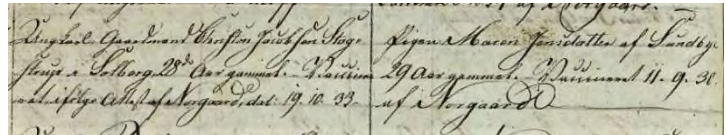 af Norgaard.
Ungkarl, Gaardmand Christen Jacobsen Stag-
strup i Solberg, 28 Aar gammel. Vaccine-
ret ifølge Attest af Norgaard, dat: 19. 10. 33.
Pigen Maren Jensdatter af Sundby,
29 Aar gammel. Vaccineret 11. 9. 30.
af Norgaard